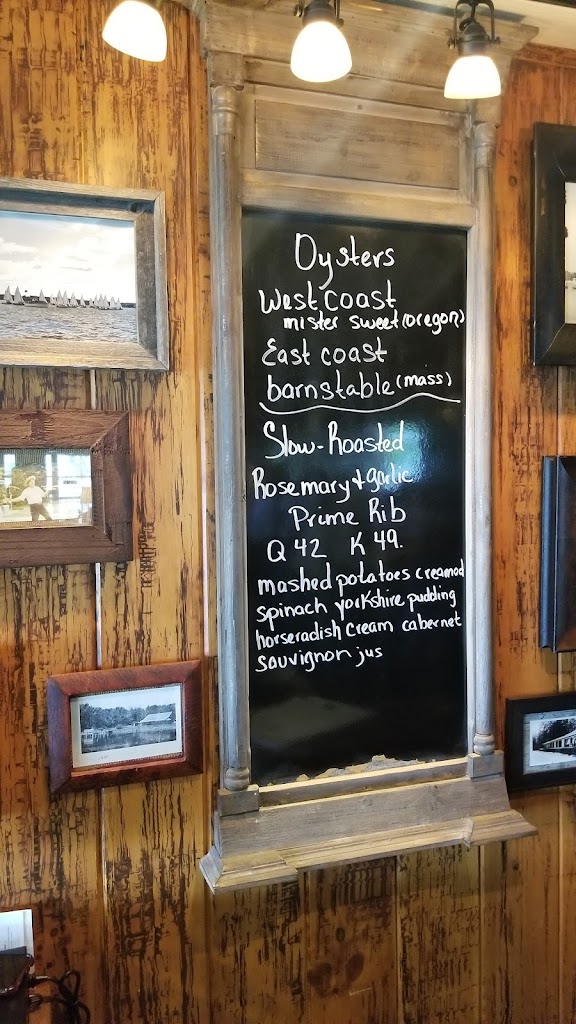 Oysters
West Coast
mister sweet (oregon)
East coast
barnstable (mass)
Slow-Roasted
Rosemary & garlic
Prime Rib
Q 42 K 49.
mashed potatoes creamed
spinach yorkshire pudding
horseradish cream cabernet
sauvignon jus